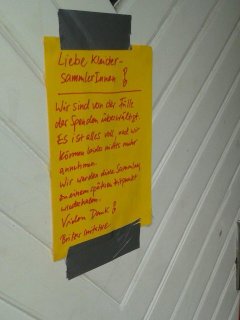 Liebe Kleider-
sammlerInnen!
Wir sind von der Fülle
der Spenden überwältigt.
Es ist alles voll, und wir
können leider nichts mehr
annehmen.
Wir werden diese Sammlung
zu einem späteren Zeitpunkt
wiederholen.
Vielen Dank!